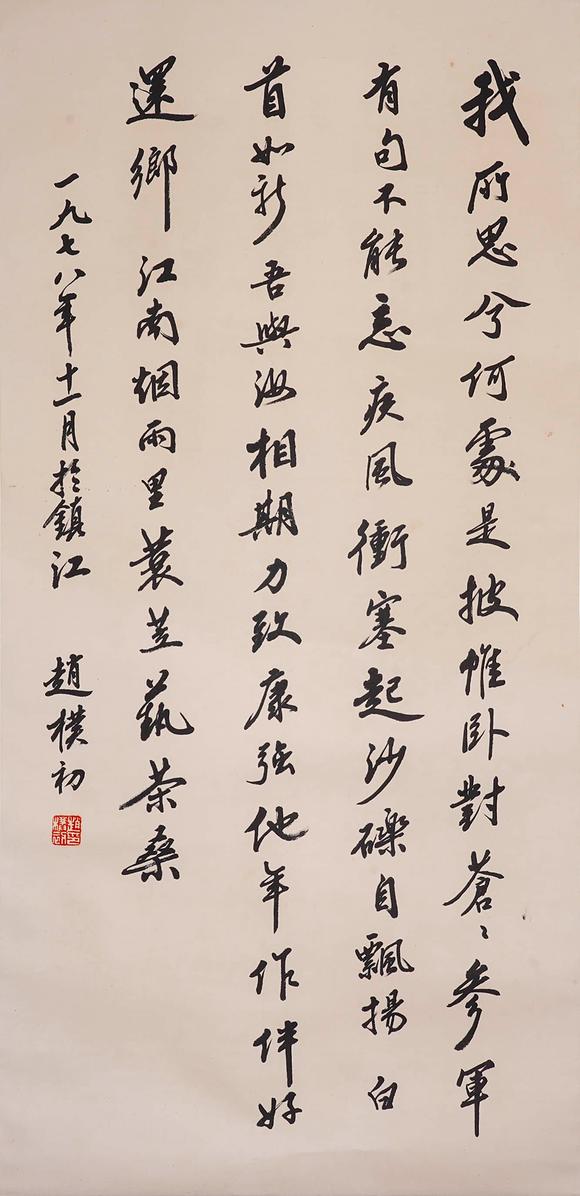 我所思兮何處是披帷卧對蒼〻參軍
有句不能忘疾風衝塞起沙礫自飄揚 白
首如新吾與汝相期力致康強他年作伴好
還鄉 江南烟雨里蓑笠藝茶桑
一九七八年十一月於鎮江 趙樸初
趙樸初印